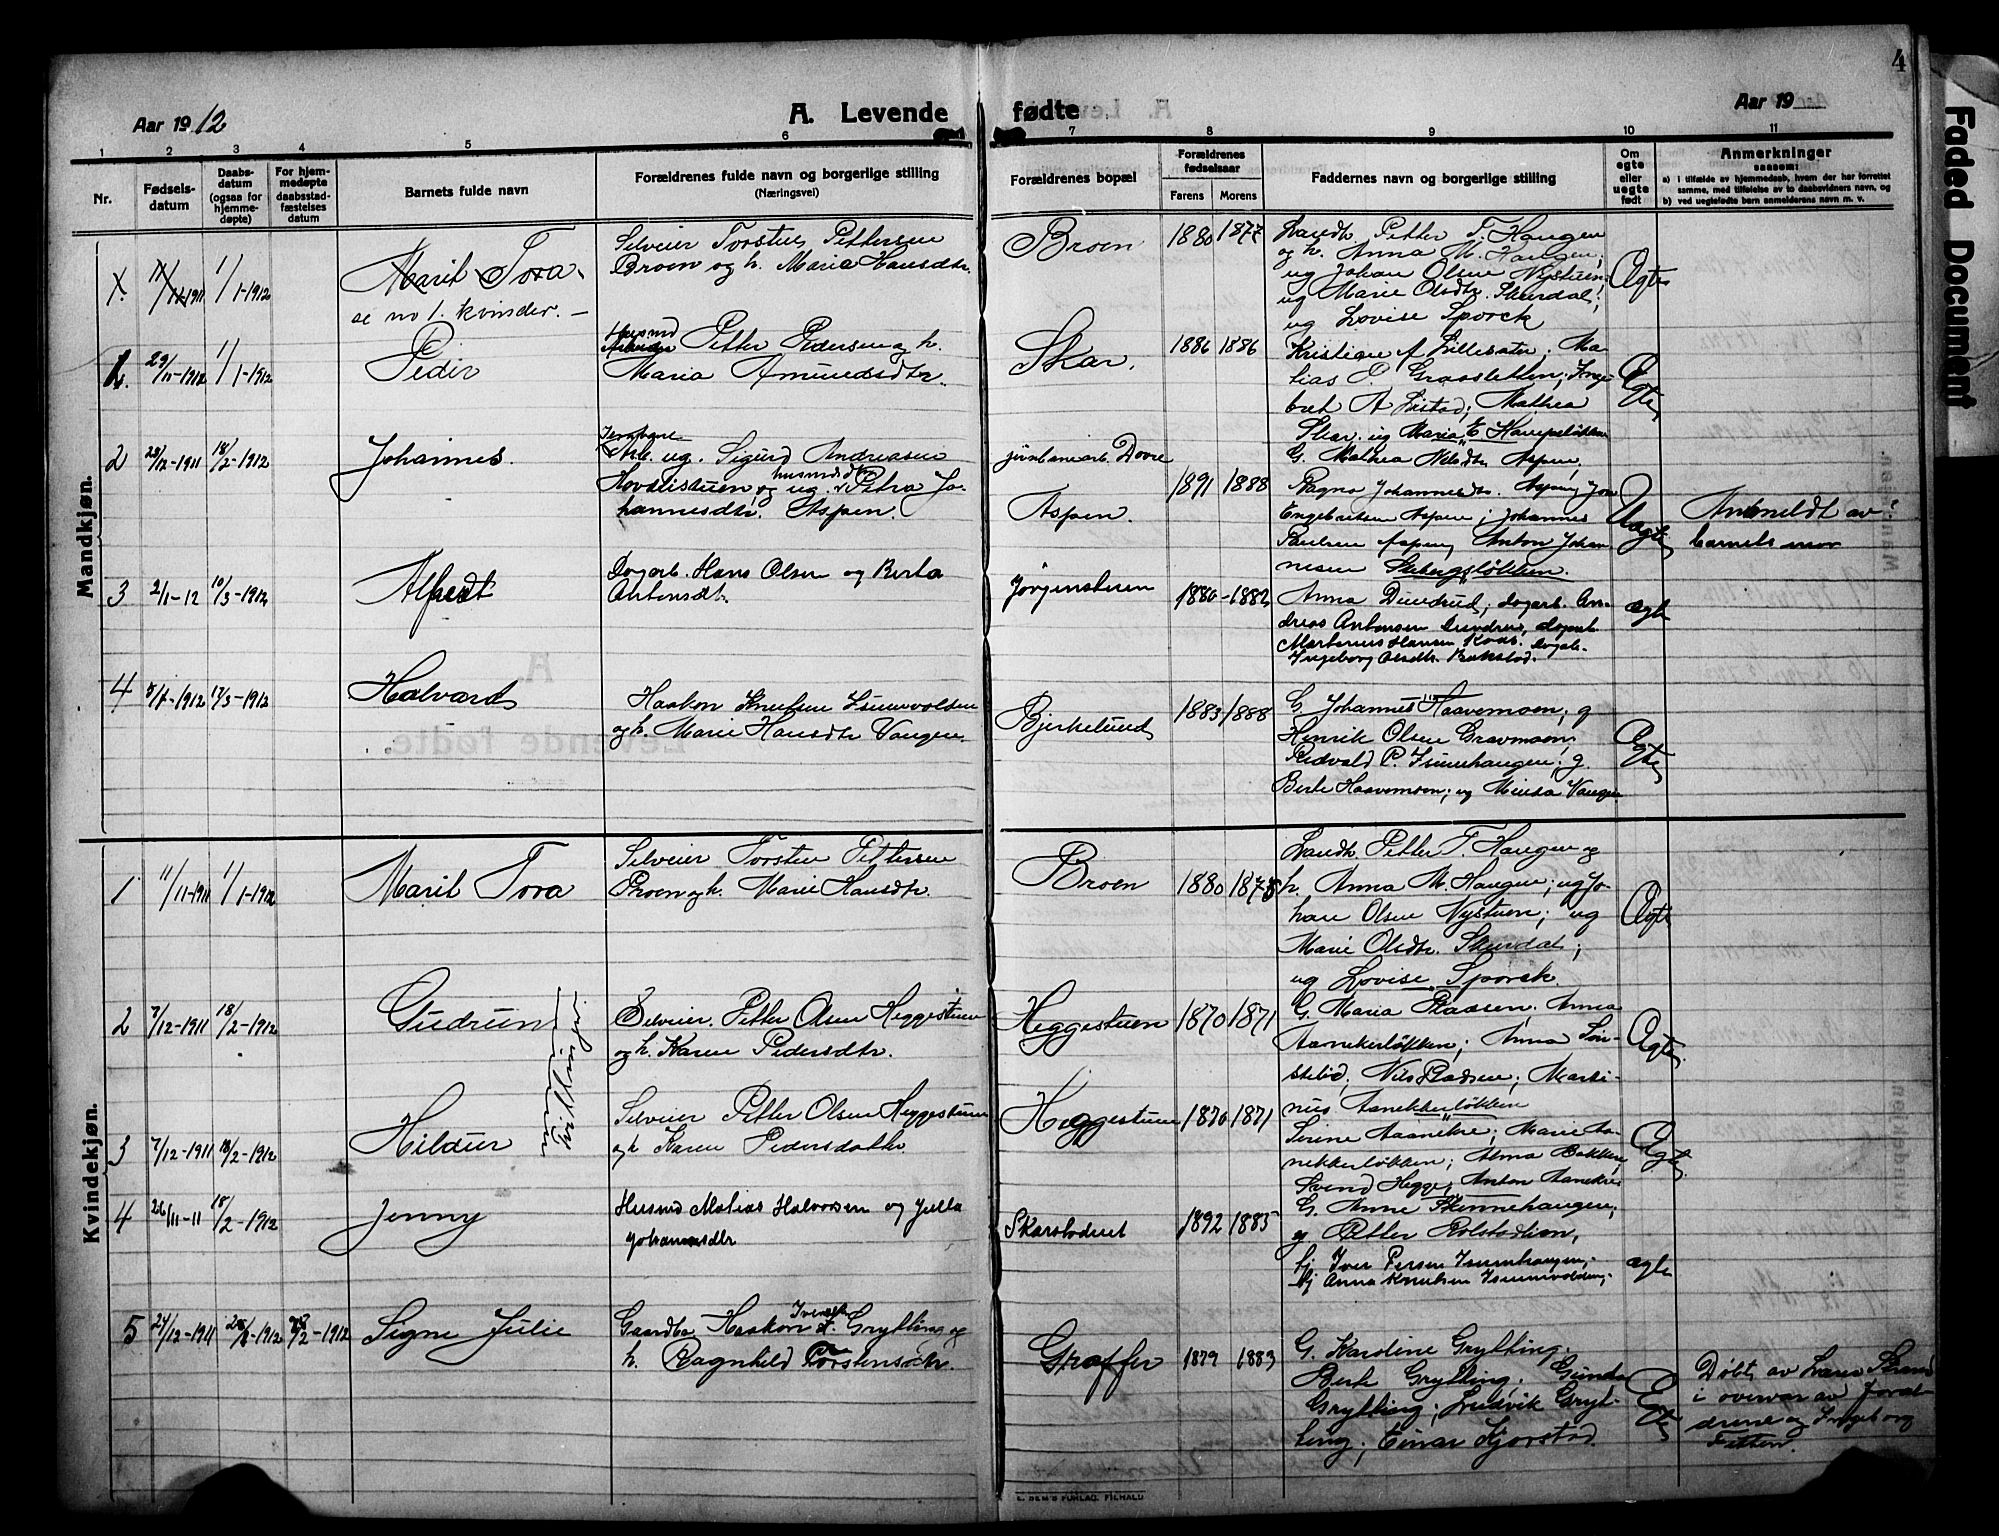 4
Faded Document
Aar 1912
A. Levende fødte
Aar 19
1 2 3 4 5 6 7 8 9 10 11
Nr.
Fødsels-
datum
Daabs-
datum
(ogsaa for
hjemme-
døpte)
For hjem-
medøpte
daabsstad-
fæstelses
datum
Barnets fulde navn
Forældrenes fulde navn og borgerlige stilling
(Næringsvei)
Forældrenes bopæl
Forældrenes
fødselsaar
Farens
Morens
Faddernes navn og borgerlige stilling
Om
egte
eller
uegte
født
Anmerkninger
saasom:
a) i tilfælde av hjemmedaab, hvem der har forrettet
samme, med tilføielse av to daabsvidners navn, og
b) ved uegtefødte barn anmelderens navn m. v.
Mandkjøn.
1/1-1912
Marit Tora
se no 1. kvinder. —
Selveier Torsten Pettersen
Broen og h. Maria Hansdtr.
Broen
1880 1877
Landh. Petter T. Haugen
og h. Anna M. Haugen;
ug Johan Olsen Nystuen;
ug Marie Olsdtr. Skurdal;
ug Lovise Sporck
Ægte
29/11-1912 1/1-1912
Peder
Husmd
Petter Pedersen og h.
Maria Amundsdtr.
Skar.
1886 1886
Kristine Lillesæter; Ma-
tias P. Graasletten; Inge-
bret A. Listad; Mathea
Skar. ug Maria E.
Ægte
2 28/12-1911 18/2-1912
Johannes.
Jernbane
Arb. ug. Sigurd Andreasen
husmd.
og ug. Petra Jo-
hannesdtr. Aspen.
jernbanearb. Dovre
Aspen.
1891 1888
G. Mathea Nilsdtr Aspen;
Ragna Johannesdtr. Aspen; Jon
Engebretsen Aspen; Johannes
Paulsen Aspen; Anton Johan
nesen
Uægte
Anmeldt av
barnets mor
3 2/1-12 10/3-1912
Alfred
Dagarb. Hans Olsen og Berta
Antonsdtr.
Jørgenstuen
1880-1882
Anna Dundrud; dagarb. An-
dreas Antonsen dagarb.
Martinius Hansen
Ingeborg Olsdtr. Bakstad.
ægte
4 5/1-1912 17/3-1912
Halvard
Haakon Knutsen Isumvolden
og h. Marie Hansdtr Vangen.
Bjerkelund
1883 1888
G. Johannes Haavemoen; g
Henrik Olsen Gravmoen;
P. Isumhaugen; g.
Berte Haavemoen; ug Minda Vangen
Ægte
Kvindekjøn.
1 11/11-1911 1/1-1912
Marit Tora
Selveier Torsten Pettersen
Broen og h. Marie Hansdtr.
Broen
1880 1875
Landh. Petter T. Haugen og
h. Anna M. Haugen; ug Jo-
han Olsen Nystuen; ug
Marie Olsdtr. Skurdal;
ug Lovise Sporck
Ægte
2 7/12-1911 18/2-1912
Gudrun
Tvillinger
Selveier. Petter Olsen Heggestuen
og h. Karen Pedersdtr.
Heggestuen
1870 1871
G. Maria Pladsen; Anna
Aanekerløkken; Anna
Nils Pladsen; Marti-
nius Aanekkerløkken
Ægte
3 7/12-1911 18/2-1912
Hildur
Selveier Petter Olsen Heggestuen
og h Karen Pedersdatter
Heggestuen
1870 1871
Serine Aanekre; Marie Aa-
nekkerløkken; Alma Bakken,
Svend Hegge; Anton Aanekre
Ægte
4 26/11-11 18/2-1912
Jenny
Husmd Matias Halvorsen og Julla
Johannesdtr
Skarstodeiet
1892 1885
G. Anne Skinnehaugen;
og Petter Rolstadlien,
tj Iver Persen Isumhaugen;
tj Anna Knutsen Isumvolden;
ægte
5 24/12-1911 25/2-1912
Signe Julie
Gaardbr. Haakon Iversen Grytting og
h. Ragnhild Torstensdtr.
Graffer
1879 1883
G. Karoline Grytting.
Berte Grytting; Gunda
Grytting; Ludvik Gryt-
ting; Einar Kjorstad.
Ægte
Døbt av Lars Strand
i overvær av foræl-
drene og Ingeborg
E. SEM'S FORLAG, F.HALD